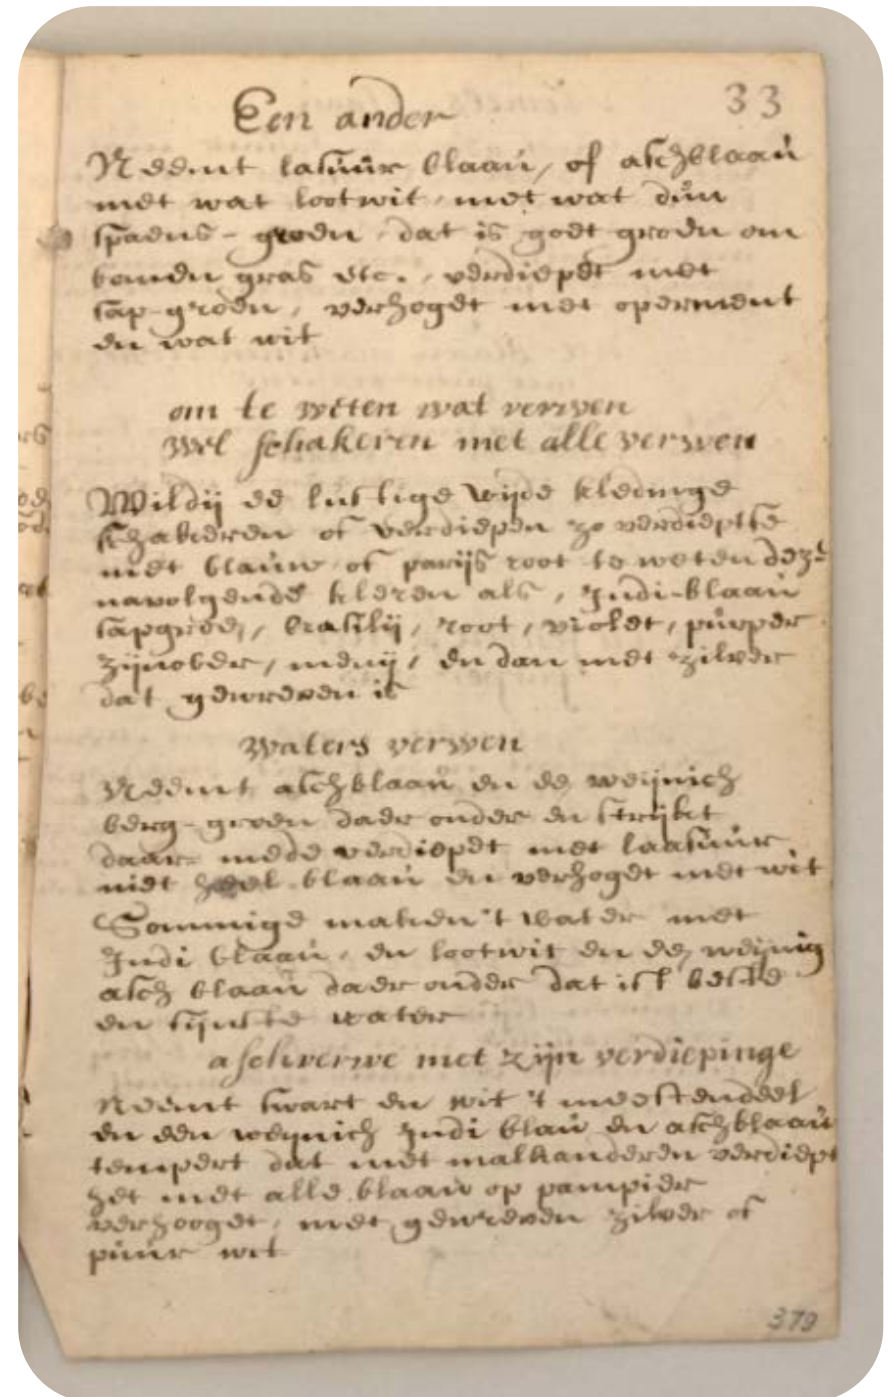 Een ander
33
Neemt lasuur blaau, of aschblaau
met wat lootwit, met wat dun
spaens-groen, dat is goet groen om
bomen gras etc., verdiepet met
sap-groen, verhoget met operment
en wat wit
om te weten wat verwen
wel schakeren met alle verwen
Wildij ee lustige wijde kledinge
schakeren of verdiepen zo verdieptse
met blauw of parijs root te weten deze
navolgende kleren als, Indi-blaau
sapgroe, brasilij, root, violet, purper
zijnober, menij, en dan met zilver
dat gewreven is
waters verwen
Neemt aschblaau en ee weijnich
berg-groen daer onder en strijkt
daar mede verdiepet met laasuur
niet heel blaau en verhoget met wit
Sommige maken't water met
Indi blaau, en lootwit en ee weijnig
asch blaau daer onder dat ist beste
en sijnste water
aschverwe met zijn verdiepinge
Neemt swart en wit 't meestendeel
en een weijnich Indi blau en aschblaau
tempert dat met malkanderen verdiept
het met alle blaau op pampier
verhooget, met gewreven zilver of
puur wit
379